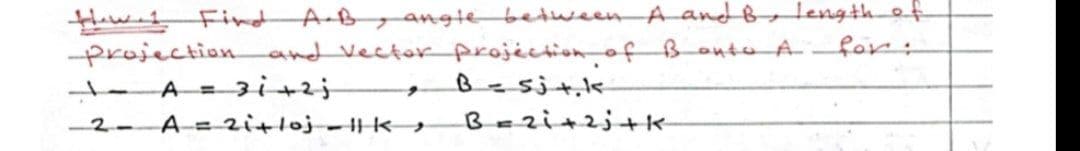 H.w.1 Find A.B , angle between A and B , length of
projection and vector projection of B onto A for :
1- A = 3i+2j , B = 5j+k
2- A = 2i+10j-11k , B = 2i+2j+k